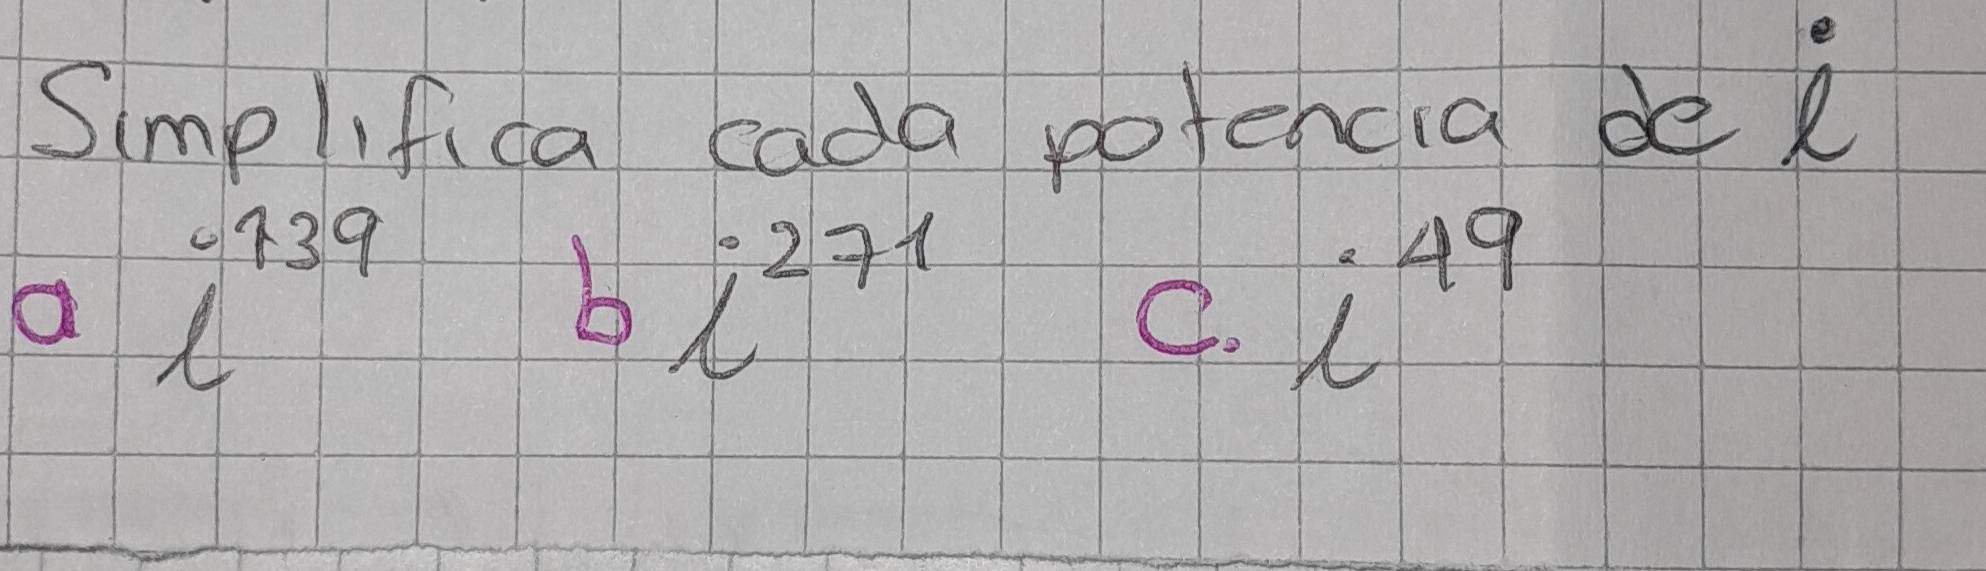 Simplifica cada potencia de i
a i^139 b i^271 c. i^49